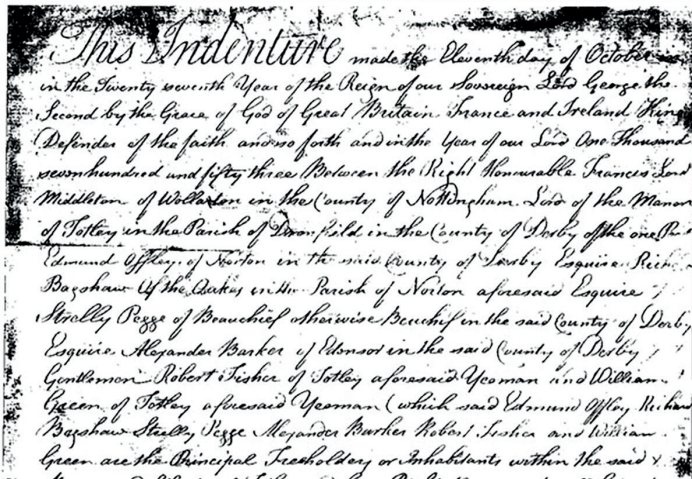 This Indenture made the Eleventh day of October
in the Twenty seventh Year of the Reign of our Sovereign Lord George the
Second by the Grace of God of Great Britain France and Ireland King
Defender of the faith and so forth and in the Year of our Lord One Thousand
seven hundred and fifty three Between the Right Honourable Francis Lord
Middleton of Wollaton in the County of Nottingham Lord of the Manor
of Totley in the Parish of Dronfield in the County of Derby of the one
Edmund Offley of Norton in the said County of Derby Esquire
Bagshaw of the Oakes in the Parish of Norton aforesaid Esquire
Strelly Pegge of Beauchief otherwise Beuchif in the said County of Derby
Esquire Alexander Barker of Edensor in the said County of Derby
Gentleman Robert Fisher of Totley aforesaid Yeoman and William
Green of Totley aforesaid Yeoman (which said Edmund Offley Richard
Bagshaw Strelly Pegge Alexander Barker Robert Fisher and William
Green are the Principal Freeholders or Inhabitants within the said